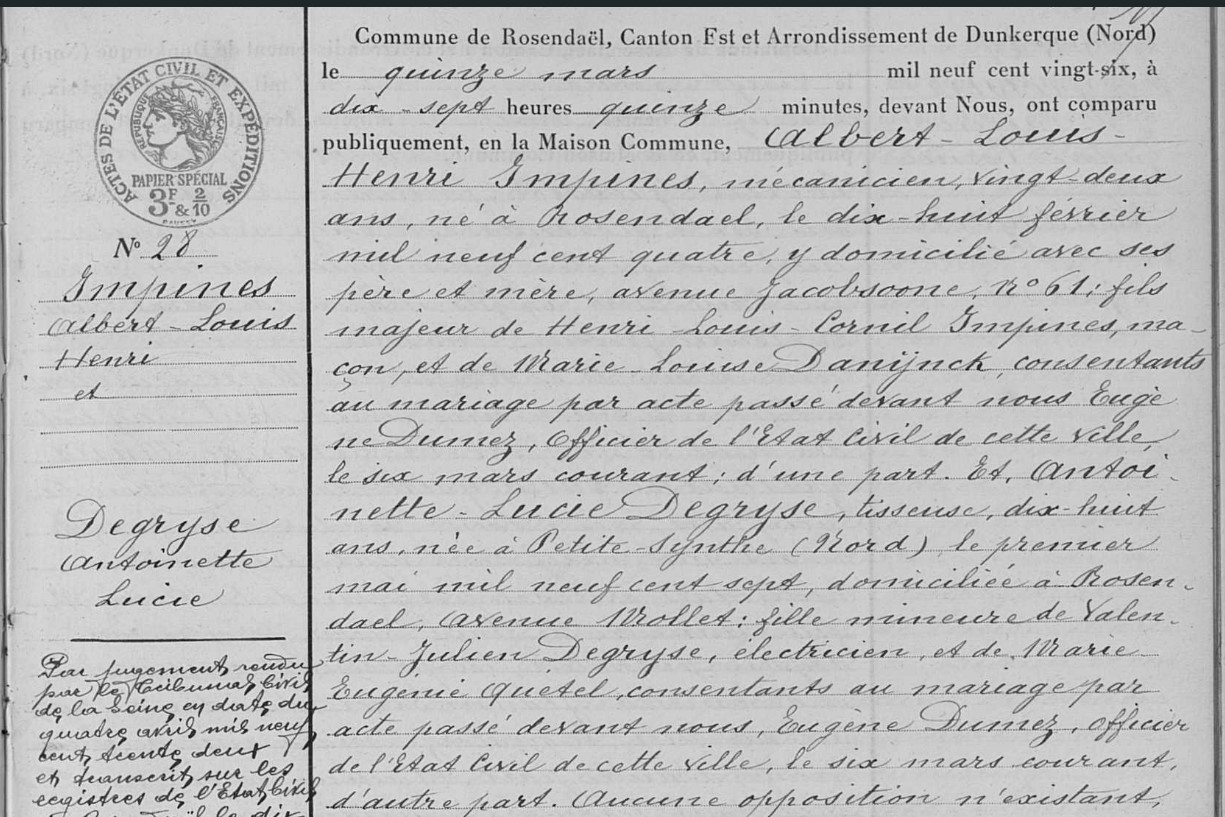 Commune de Rosendaël, Canton Est et Arrondissement de Dunkerque (Nord)
le quinze mars mil neuf cent vingt-six, à
dix-sept heures quinze minutes, devant Nous, ont comparu
publiquement, en la Maison Commune, Albert-Louis-
Henri Impines, mécanicien, vingt-deux
ans, né à Rosendael, le dix-huit février
mil neuf cent quatre, y domicilié avec ses
père et mère, avenue Jacobsoone, n° 61; fils
majeur de Henri-Louis-Cornil Impines, ma-
çon, et de Marie-Louise Danijnck, consentants
au mariage par acte passé devant nous Eugè
ne Dumez, Officier de l'Etat Civil de cette ville
le six mars courant; d'une part. Et, Antoi-
nette-Lucie Degryse, tisseuse, dix-huit
ans, née à Petite-Synthe (Nord) le premier
mai mil neuf cent sept, domiciliée à Rosen-
dael, avenue Mollet; fille mineure de Valen-
tin-Julien Degryse, électricien, et de Marie
Eugénie Quétel, consentants au mariage par
acte passé devant nous, Eugène Dumez, Officier
de l'Etat Civil de cette ville, le six mars courant,
d'autre part. Aucune opposition n'existant,
ACTES DE L'ÉTAT CIVIL ET EXPÉDITIONS
RÉPUBLIQUE FRANÇAISE
PAPIER SPÉCIAL
3F 2
& 10
N° 28
Impines
Albert-Louis
Henri
et
Degryse
Antoinette
Lucie
Par jugement rendu
par le Tribunal Civil
de la Seine en date du
quatre avril mil neuf
cent trente deux
et transcrit sur les
registres de l'Etat Civil